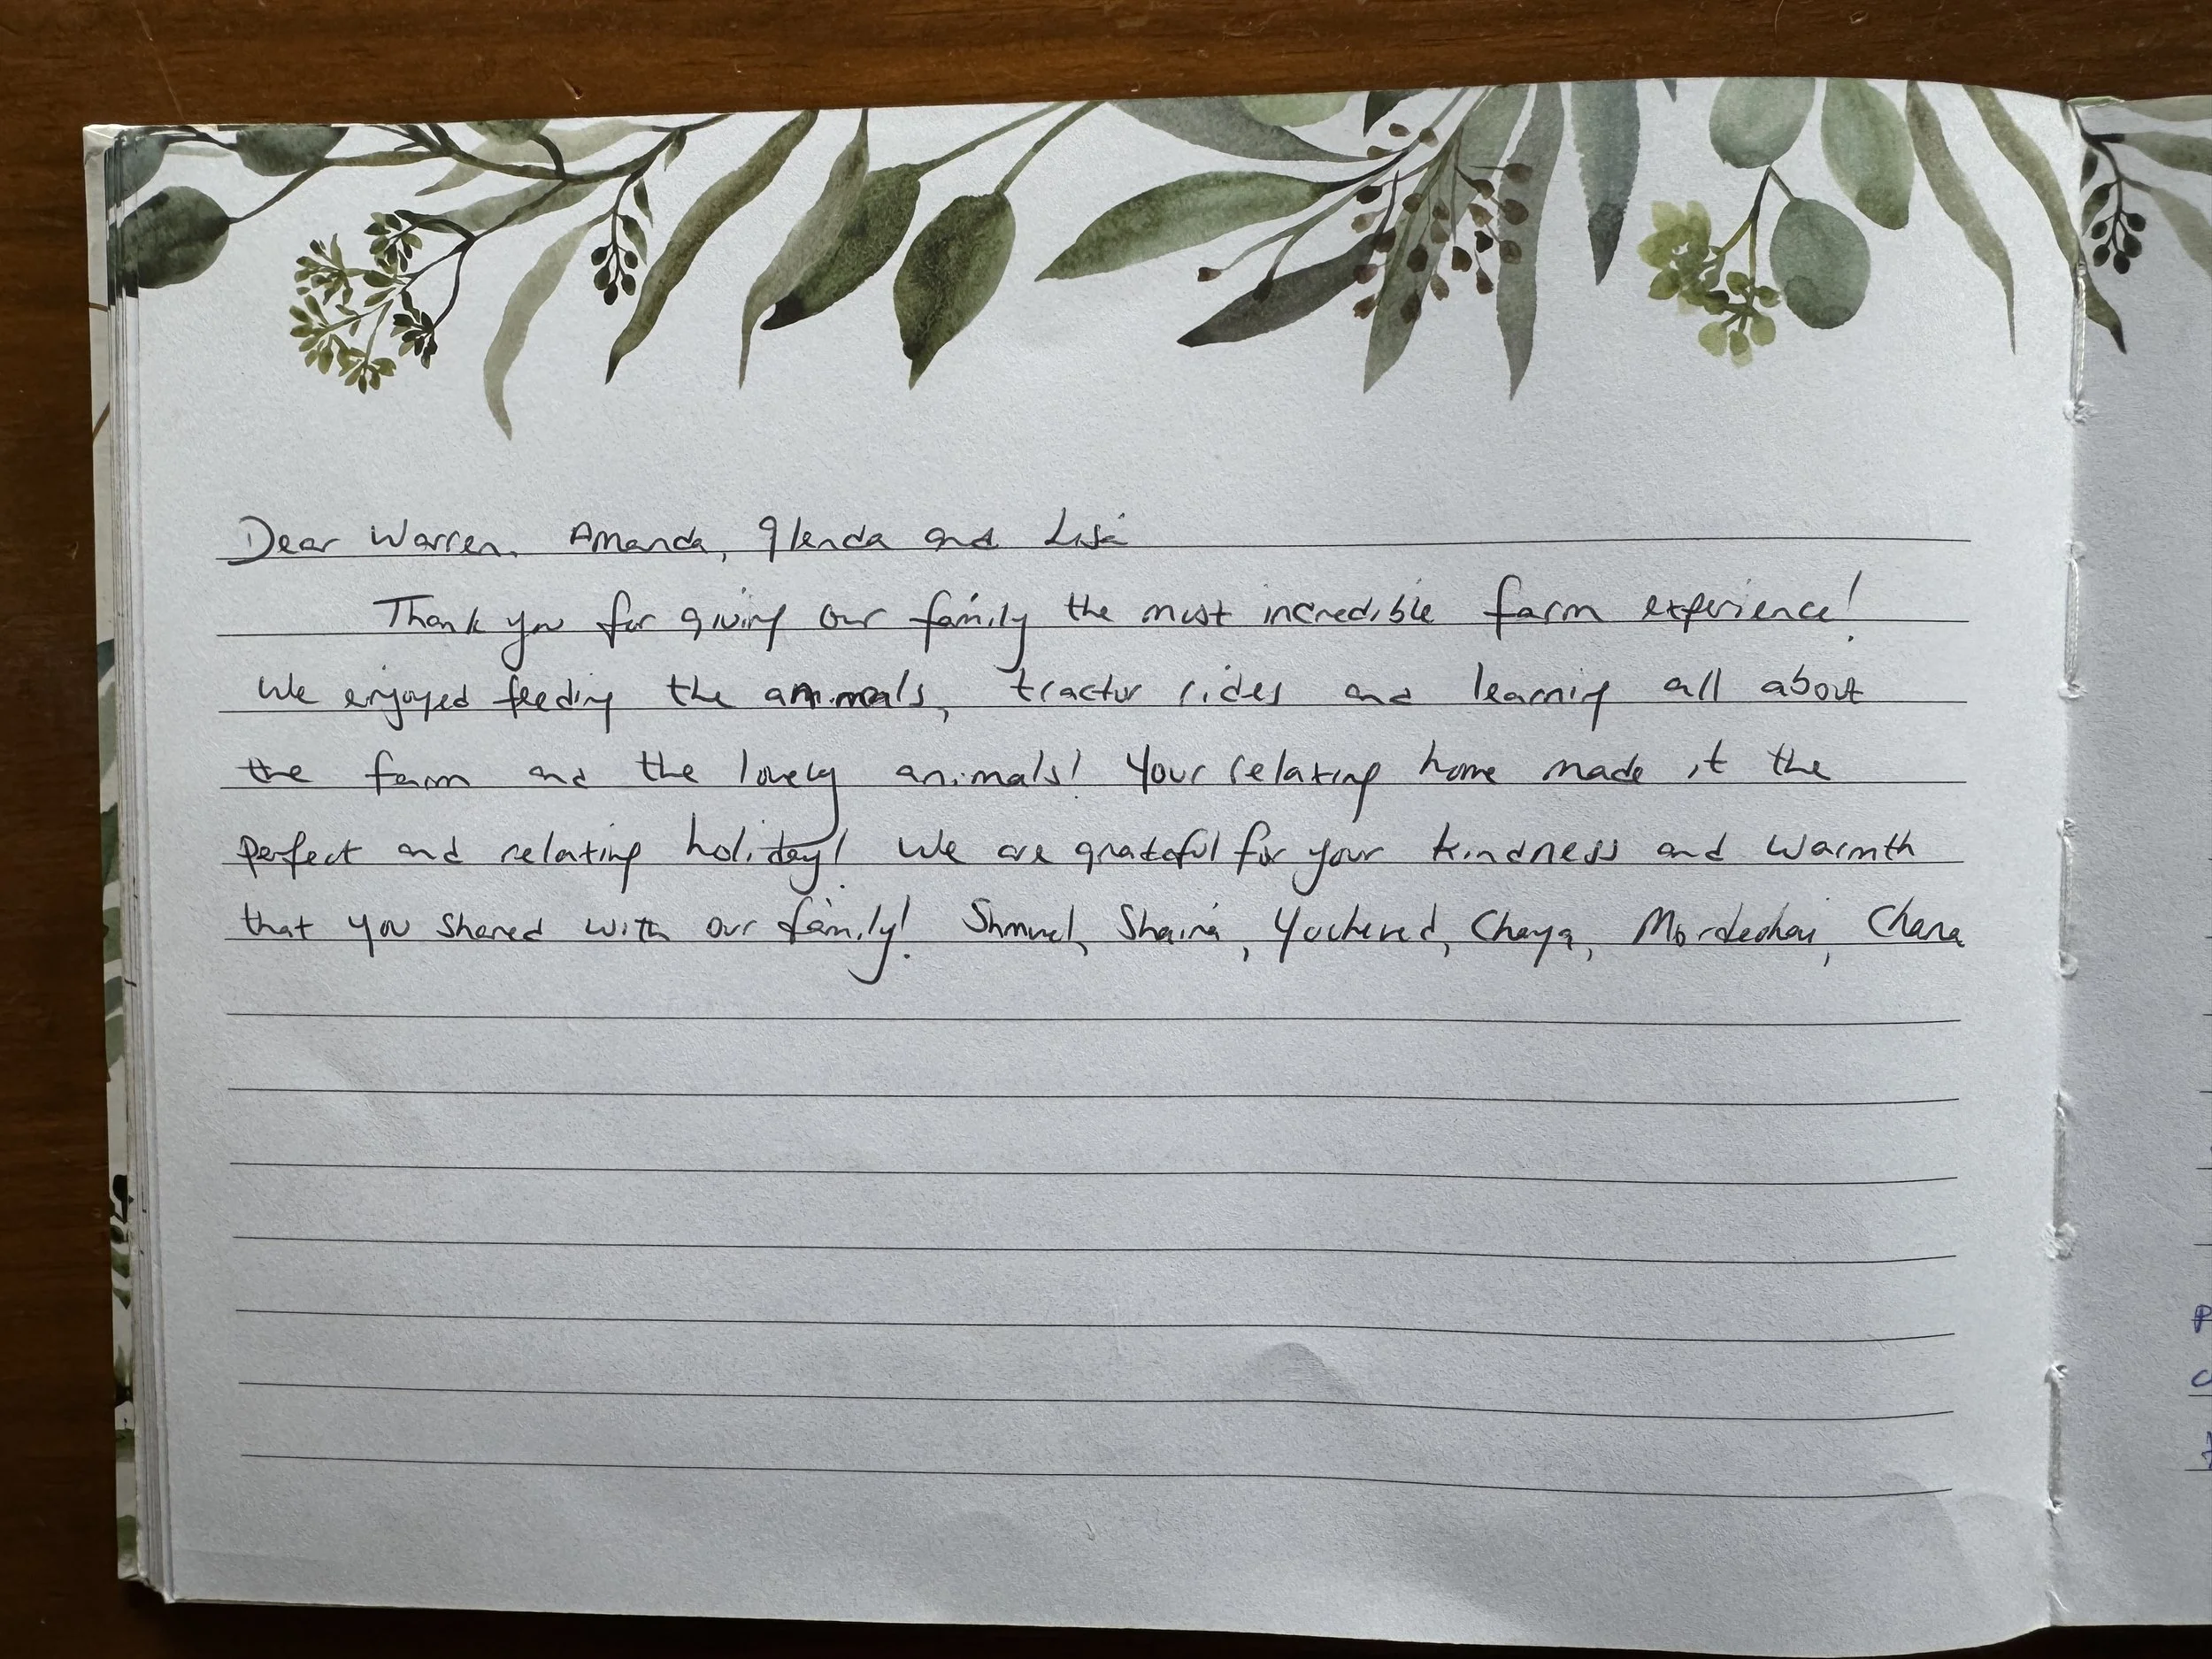 Dear Warren, Amanda, Glenda and Lisa
Thank you for giving our family the most incredible farm experience!
We enjoyed feeding the animals, tractor rides and learning all about
the farm and the lovely animals! Your relaxing home made it the
perfect and relaxing holiday! We are grateful for your kindness and warmth
that you shared with our family! Shmuel, Shaina, Yocheved, Chaya, Mordechai, Chana